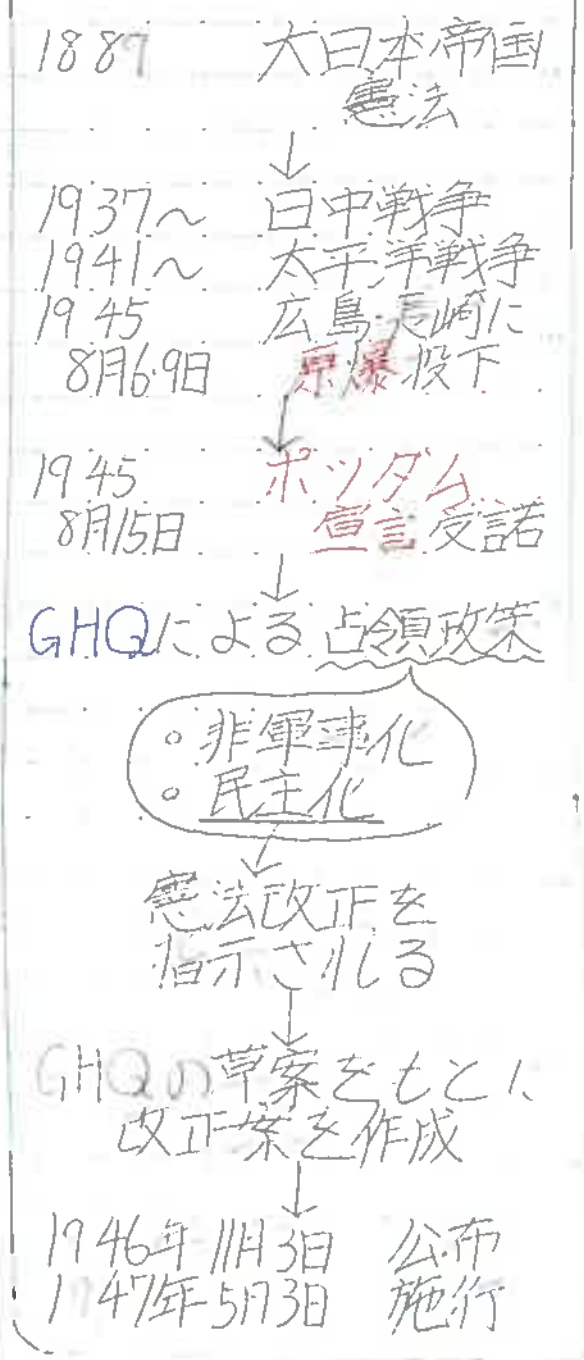 1889 大日本帝国
憲法
1937～ 日中戦争
1941～ 太平洋戦争
1945 広島・長崎に
8月6.9日 原爆投下
1945 ポツダム
8月15日 宣言受諾
GHQによる占領政策
。非軍事化
。民主化
憲法改正を
指示される
GHQの草案をもとに
改正案を作成
1946年11月3日 公布
1947年5月3日 施行